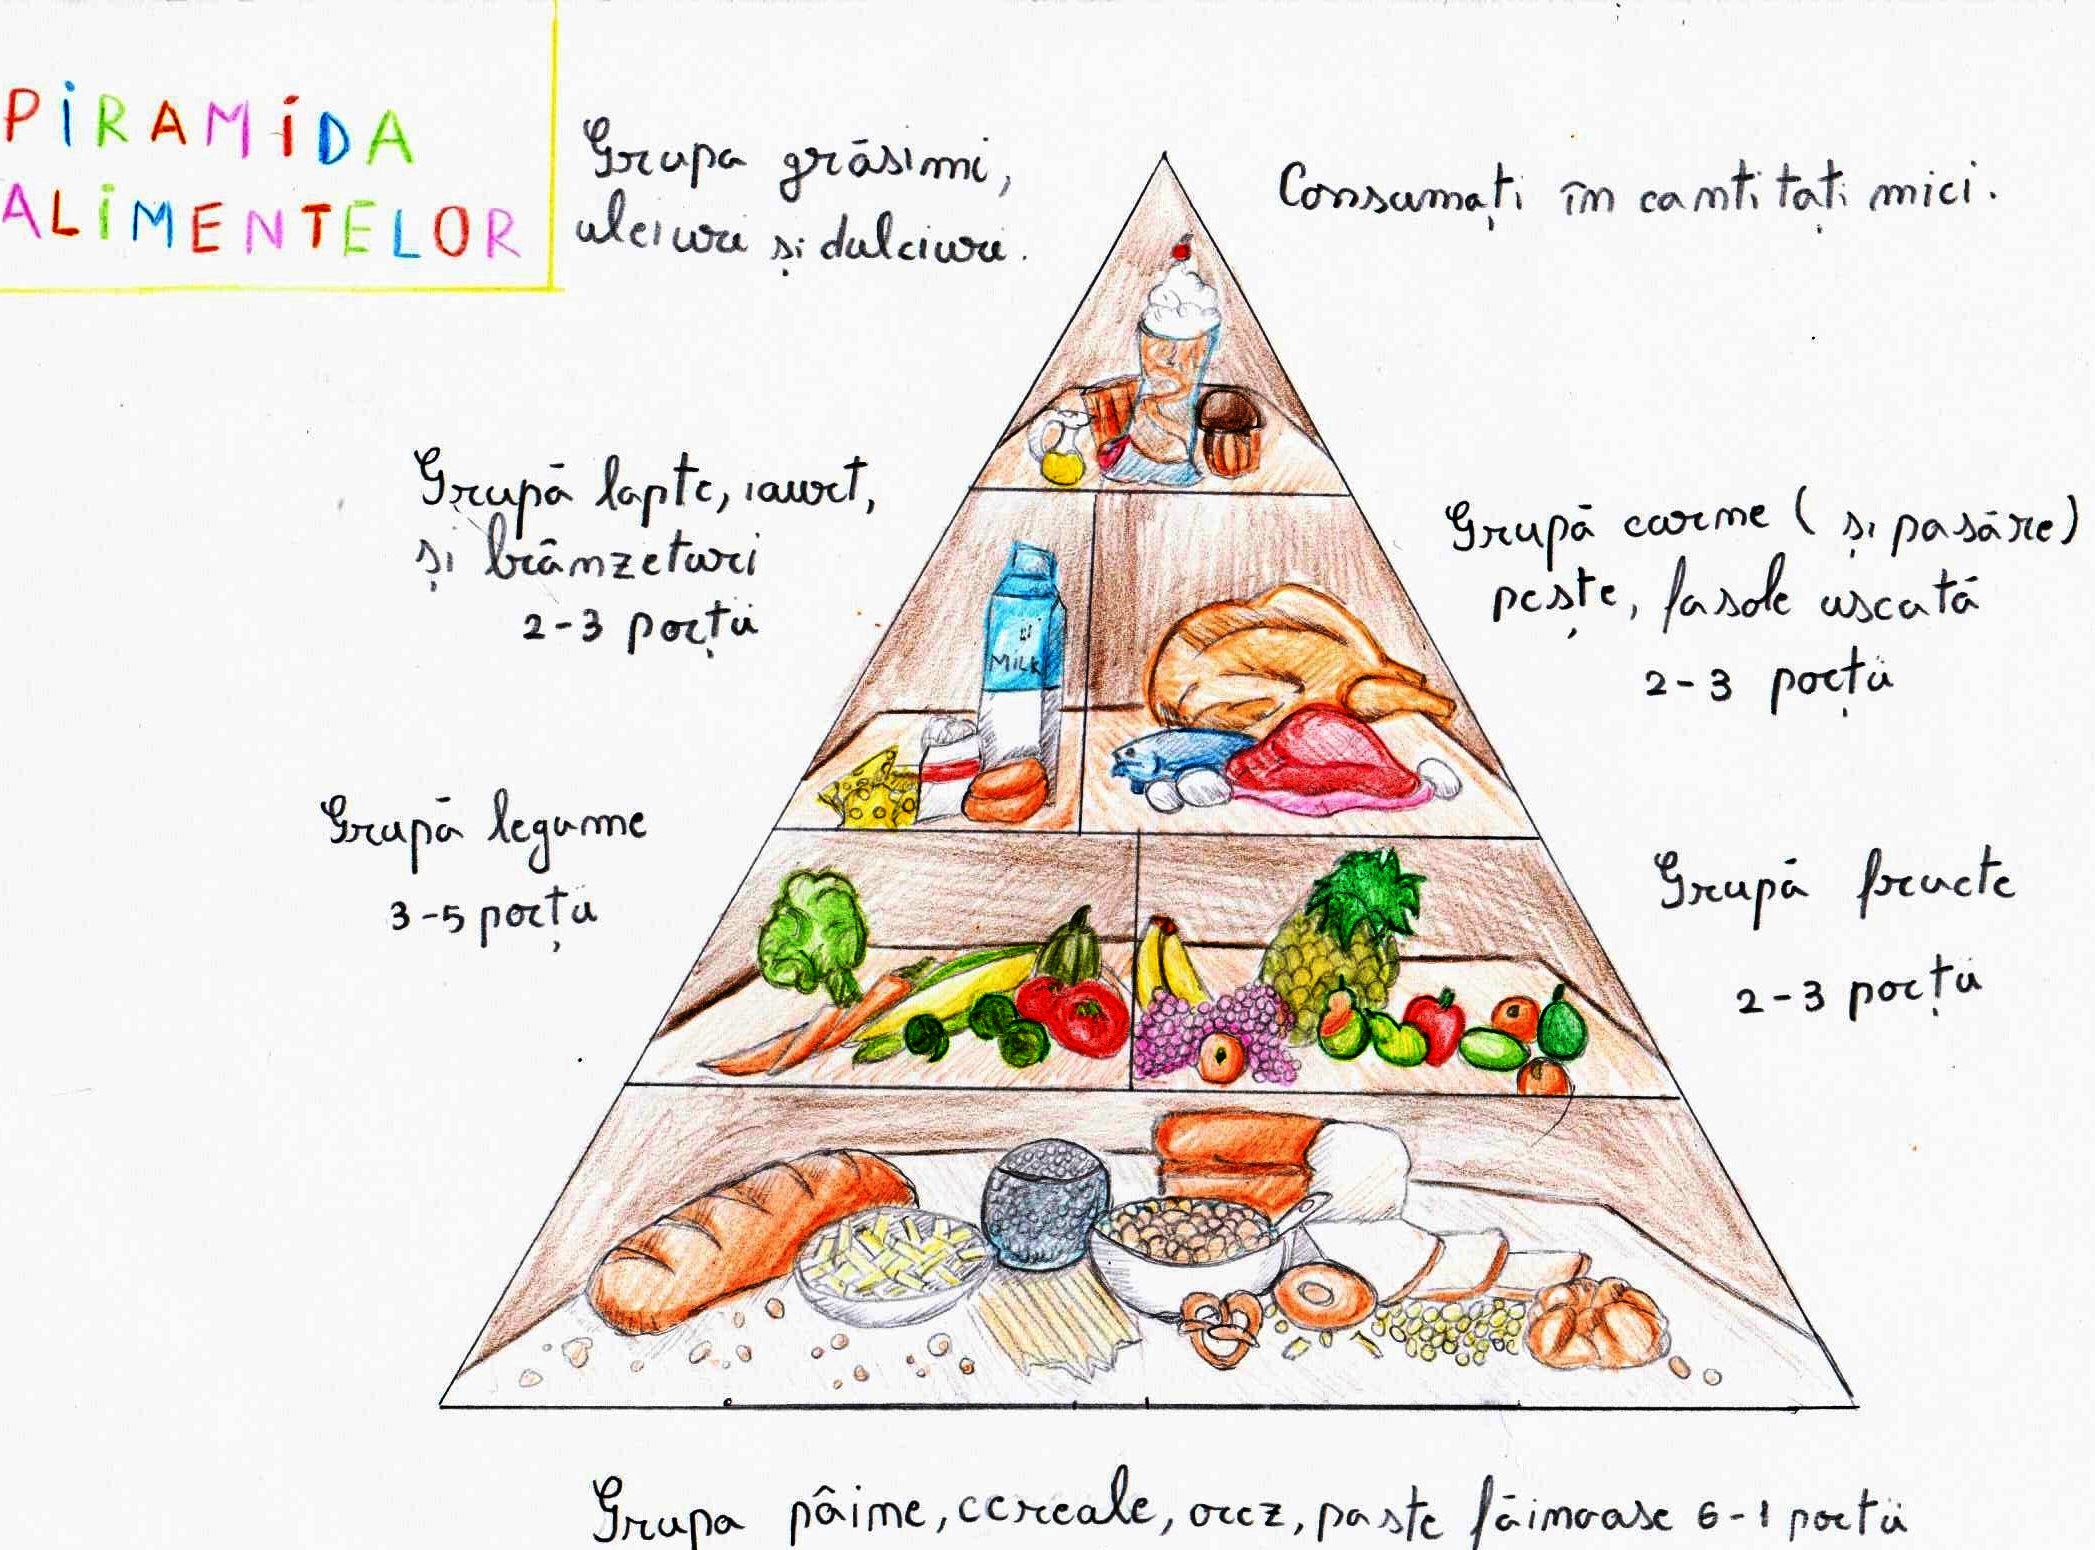 PIRAMIDA
ALIMENTELOR
Grupa grăsimi,
ulciuri și dulciuri.
Consumați în cantitați mici.
Grupă lapte, iaurt,
și brânzeturi
2-3 porții
MILK
Grupă carne ( și pasăre)
pește, fasole uscată
2-3 porții
Grupă legume
3-5 porții
Grupă fructe
2-3 porții
Grupa pâine, cereale, orez, paste făinoase 6-1 porții